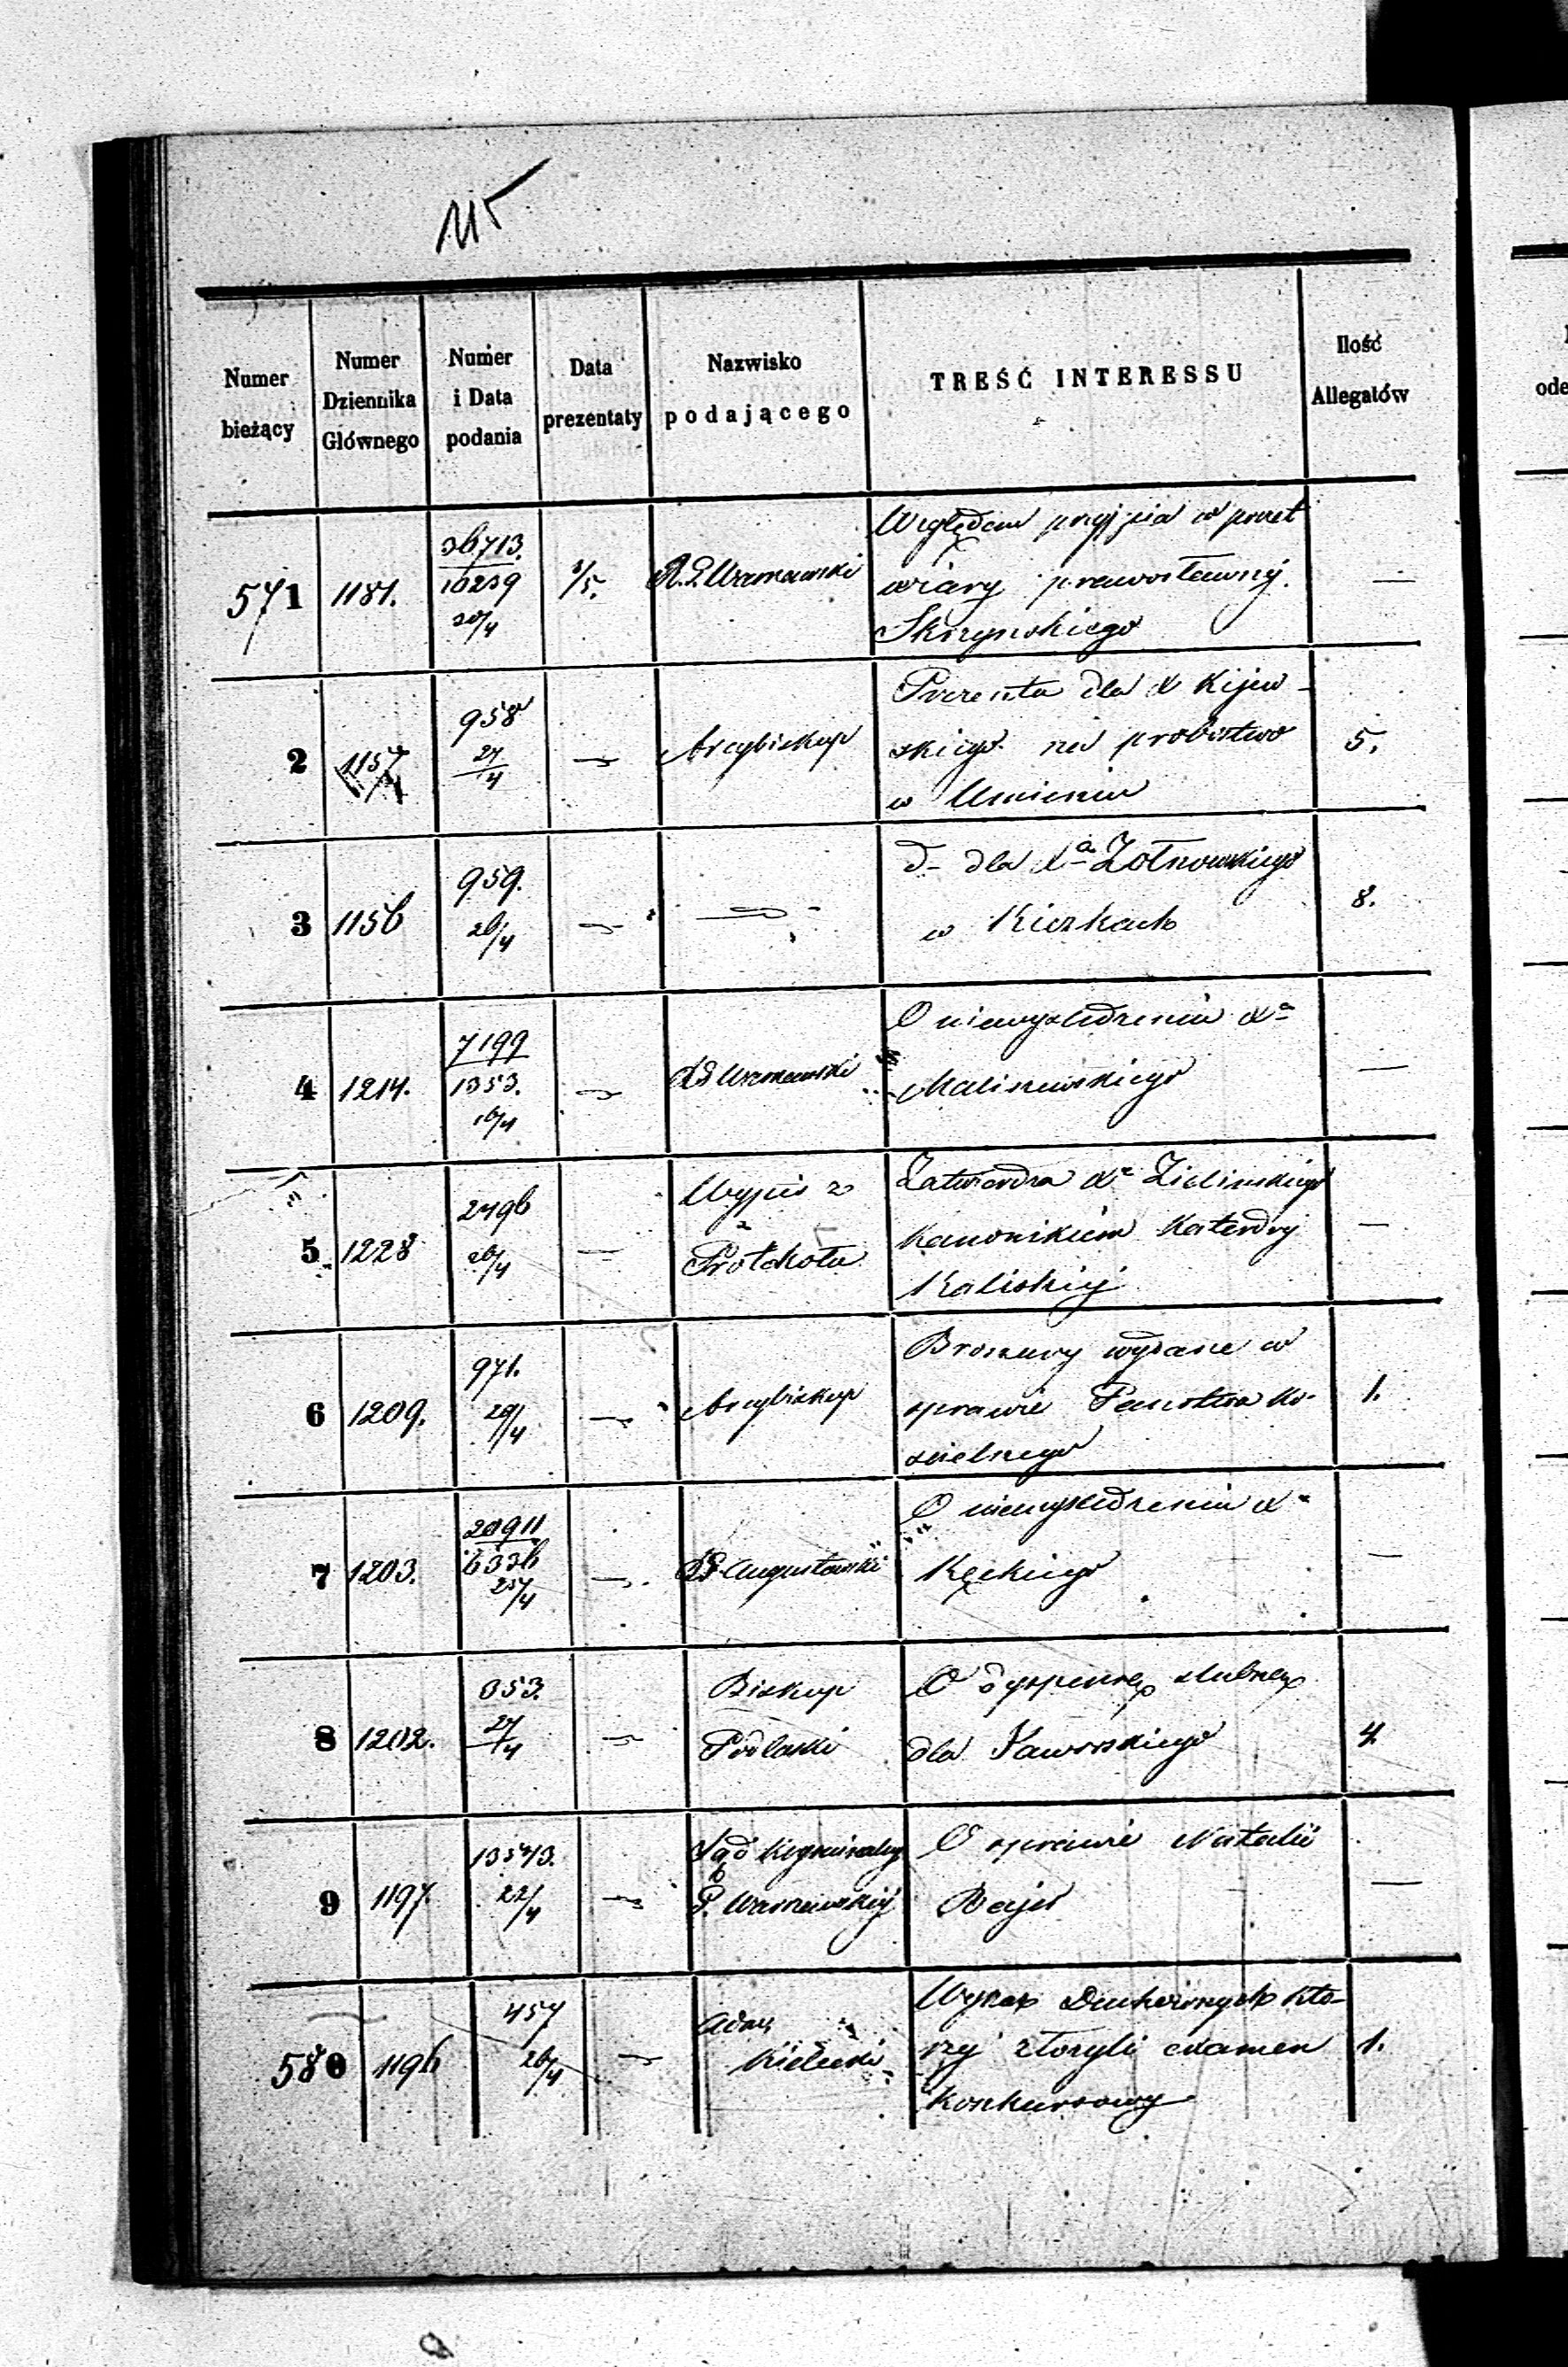 115
Numer bieżący
Numer Dziennika Głównego
Numer i Data podania
Data prezentaty
Nazwisko podającego
TREŚĆ INTERESSU
Ilość Allegatów
571 1181. 36713. 10239 20/4 1/5. R. G. Warszawski
Względem przyjęcia
wiary prawosławnej
Skrzynskiego
—
2 1157 958 27/4 — Arcybiskup
Prezenta dla X Kijew-
skiego na probostwo
w Umieniu
5.
3 1156 959. 26/4 — —
d- dla Xa Żołnowskiego
w
8.
4 1214. 7199 1353. 16/4 — Warszawski
O niewyśledzeniu Xa
Malinowskiego
—
5 1228 2496 20/4 — Wypis z
Protokołu
Zatwierdza Xa Zielinskiego
Kanonikiem Katedry
Kaliskiej
—
6 1209. 971. 29/4 — Arcybiskup
Broszury wydane w
sprawie Państwa Ko-
scielnego
1.
7 1203. 20911 6336 25/4 — Augustowski
O niewyśledzeniu Xa
Kęckiego
—
8 1202. 353. 27/4 — Biskup
Podlaski
O dyspensę slubną
dla Jaworskiego
4.
9 1197 13543. 22/4 — Sąd Kryminalny
G. Warszawskiej
O sprawie Natalii
—
580 1196 457 26/4 — Adm.
Kielecki
Wykaz Duchownych któ-
rzy złożyli examen
Konkursowy
1.